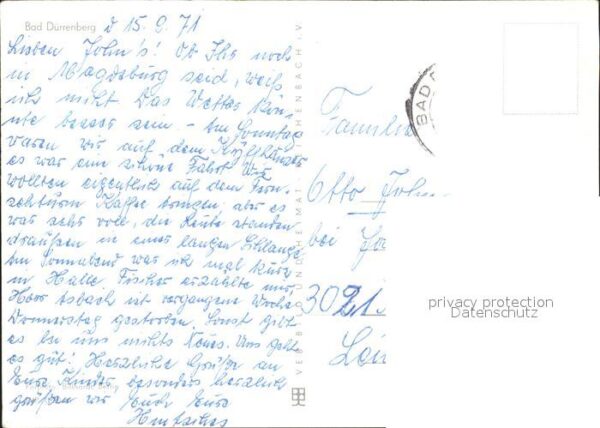 Bad Dürrenberg d 15.9.71
Lieben John's! Ob Ihr noch
in Magdeburg seid, weiß
ich nicht Das Wetter kön-
nte besser sein - Am Sonntag
waren wir auf dem Kyffhäuser
es war eine schöne Fahrt Wir
wollten eigentlich auf dem Fern-
sehturm Kaffee trinken, aber es
war sehr voll, die Leute standen
draußen in einer langen Schlange
Am Sonnabend war ich mal kurz
in Halle. Fischer erzählte mir,
Herr Asbach ist vergangene Woche
Donnerstag gestorben. Sonst gibt
es bei uns nichts Neues. Uns geht
es gut! Herzliche Grüße an
Eure Kinder besonders herzlich
grüßen wir Euch Eure
VERLAG REICHENBACH I. V.
BAD
Familie
Otto John
bei
3021
privacy protection
Datenschutz